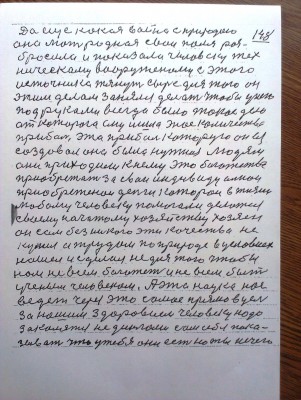 148
Да еще какая война с природою
она мать родная свои поля раз-
бросила и показала человеку тех
ническому вооруженому с этого
источника тянут сырье для того он
этим делом занялся делать чтобы у него
под руками всегда было такое дело
от которого ему
прибыл, эта прибыл которую он
создовал она была нужная людям
они приходили к нему это богатство
приобретат за свои индевидуалной
приобретеной денги которои в жизни
любому человеку помогали делатся
своему начатому хозяйству хозяен
он сам без никого эти качества не
купил а трудом по природе в условиях
нашел и сделал не для того чтобы
ном не всем богатет и не всем быть
ученым человеком. А эта наука нас
ведет через это самое прямо в уел
за нашим здоровием человеку надо
закалятся не днями сам себя пока-
зыват что у тебя они есть коты нечего